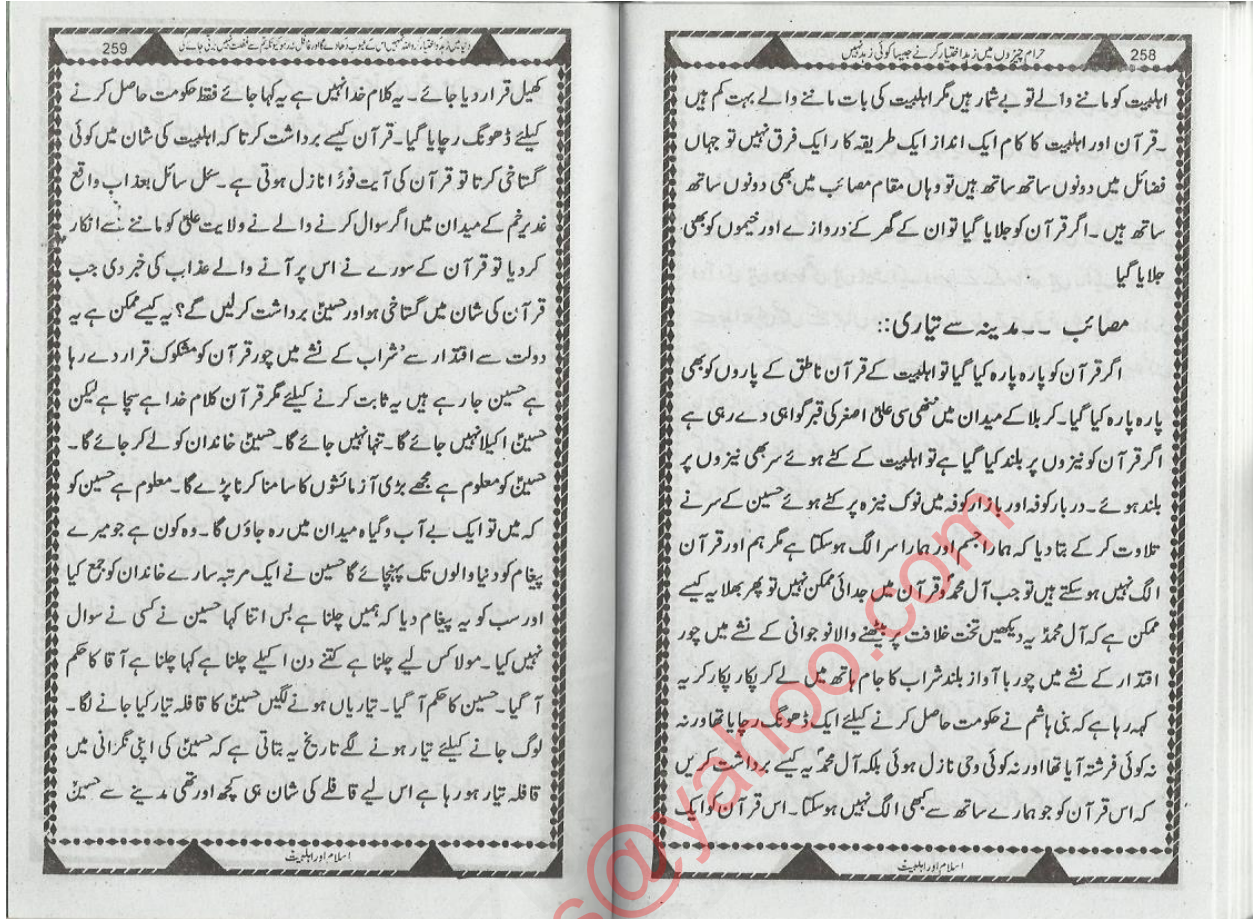 258
حرام چیزوں میں زہد اختیار کرنے جیسا کوئی زہد نہیں
اہلبیت کو ماننے والے تو بے شمار ہیں مگر اہلبیت کی بات ماننے والے بہت کم ہیں
۔قرآن اور اہلبیت کا کام ایک انداز ایک طریقہ کار ایک فرق نہیں تو جہاں
فضائل میں دونوں ساتھ ساتھ ہیں تو وہاں مقام مصائب میں بھی دونوں ساتھ
ساتھ ہیں۔اگر قرآن کو جلایا گیا تو ان کے گھر کے دروازے اور خیموں کو بھی
جلایا گیا
مصائب ۔۔مدینہ سے تیاری::
اگر قرآن کو پارہ پارہ کیا گیا تو اہلبیت کے قرآن ناطق کے پاروں کو بھی
پارہ پارہ کیا گیا۔کربلا کے میدان میں ننھی سی علی اصغر کی قبر گواہی دے رہی ہے
اگر قرآن کو نیزوں پر بلند کیا گیا ہے تو اہلبیت کے کٹے ہوئے سر بھی نیزوں پر
بلند ہوئے۔دربار کوفہ اور بازار کوفہ میں نوک نیزہ پر کٹے ہوئے حسین کے سر نے
تلاوت کر کے بتا دیا کہ ہمارا جسم اور ہمارا سر الگ ہوسکتا ہے مگر ہم اور قرآن
الگ نہیں ہو سکتے ہیں تو جب آل محمدؐ و قرآن میں جدائی ممکن نہیں تو پھر بھلا یہ کیسے
ممکن ہے کہ آل محمدؐ یہ دیکھیں تخت خلافت پر بیٹھنے والا نوجوانی کے نشے میں چور
اقتدار کے نشے میں چور با آواز بلند شراب کا جام ہاتھ میں لے کر پکار پکار کر یہ
کہہ رہا ہے کہ بنی ہاشم نے حکومت حاصل کرنے کیلئے ایک ڈھونگ رچایا تھا ورنہ
نہ کوئی فرشتہ آیا تھا اور نہ کوئی وحی نازل ہوئی بلکہ آل محمدؐ یہ کیسے برداشت کریں
کہ اس قرآن کو جو ہمارے ساتھ سے کبھی الگ نہیں ہوسکتا۔اس قرآن کو ایک
اسلام اور اہلبیت
259
دنیا میں زہد اختیار کرو اللہ تمہیں اس کے عیوب دکھا دے گا اور غافل نہ رہو کیونکہ تم سے غفلت نہیں برتی جائے گی
کھیل قرار دیا جائے۔یہ کلام خدا نہیں ہے یہ کہا جائے فقط حکومت حاصل کرنے
کیلئے ڈھونگ رچایا گیا۔قرآن کیسے برداشت کرتا کہ اہلبیت کی شان میں کوئی
گستاخی کرتا تو قرآن کی آیت فوراً نازل ہوتی ہے۔سئل سائل بعذاب واقع
غدیر خم کے میدان میں اگر سوال کرنے والے نے ولایت علیؑ کو ماننے سے انکار
کر دیا تو قرآن کے سورے نے اس پر آنے والے عذاب کی خبر دی جب
قرآن کی شان میں گستاخی ہو اور حسینؑ برداشت کرلیں گے؟ یہ کیسے ممکن ہے یہ
دولت سے اقتدار سے شراب کے نشے میں چور قرآن کو مشکوک قرار دے رہا
ہے حسین جا رہے ہیں یہ ثابت کرنے کیلئے مگر قرآن کلام خدا ہے سچا ہے لیکن
حسینؑ اکیلا نہیں جائے گا۔تنہا نہیں جائے گا۔حسینؑ خاندان کو لے کر جائے گا۔
حسینؑ کو معلوم ہے مجھے بڑی آزمائشوں کا سامنا کرنا پڑے گا۔معلوم ہے حسین کو
کہ میں تو ایک بے آب و گیاہ میدان میں رہ جاؤں گا۔وہ کون ہے جو میرے
پیغام کو دنیا والوں تک پہنچائے گا حسین نے ایک مرتبہ سارے خاندان کو جمع کیا
اور سب کو یہ پیغام دیا کہ ہمیں چلنا ہے بس اتنا کہا حسین نے کسی نے سوال
نہیں کیا۔مولا کس لیے چلنا ہے کتنے دن اکیلے چلنا ہے کہا چلنا ہے آقا کا حکم
آ گیا۔حسین کا حکم آ گیا۔تیاریاں ہونے لگیں حسینؑ کا قافلہ تیار کیا جانے لگا۔
لوگ جانے کیلئے تیار ہونے لگے تاریخ یہ بتاتی ہے کہ حسینؑ کی اپنی نگرانی میں
قافلہ تیار ہو رہا ہے اس لیے قافلے کی شان ہی کچھ اور تھی مدینے سے حسینؑ
اسلام اور اہلبیت
s@yahoo.com